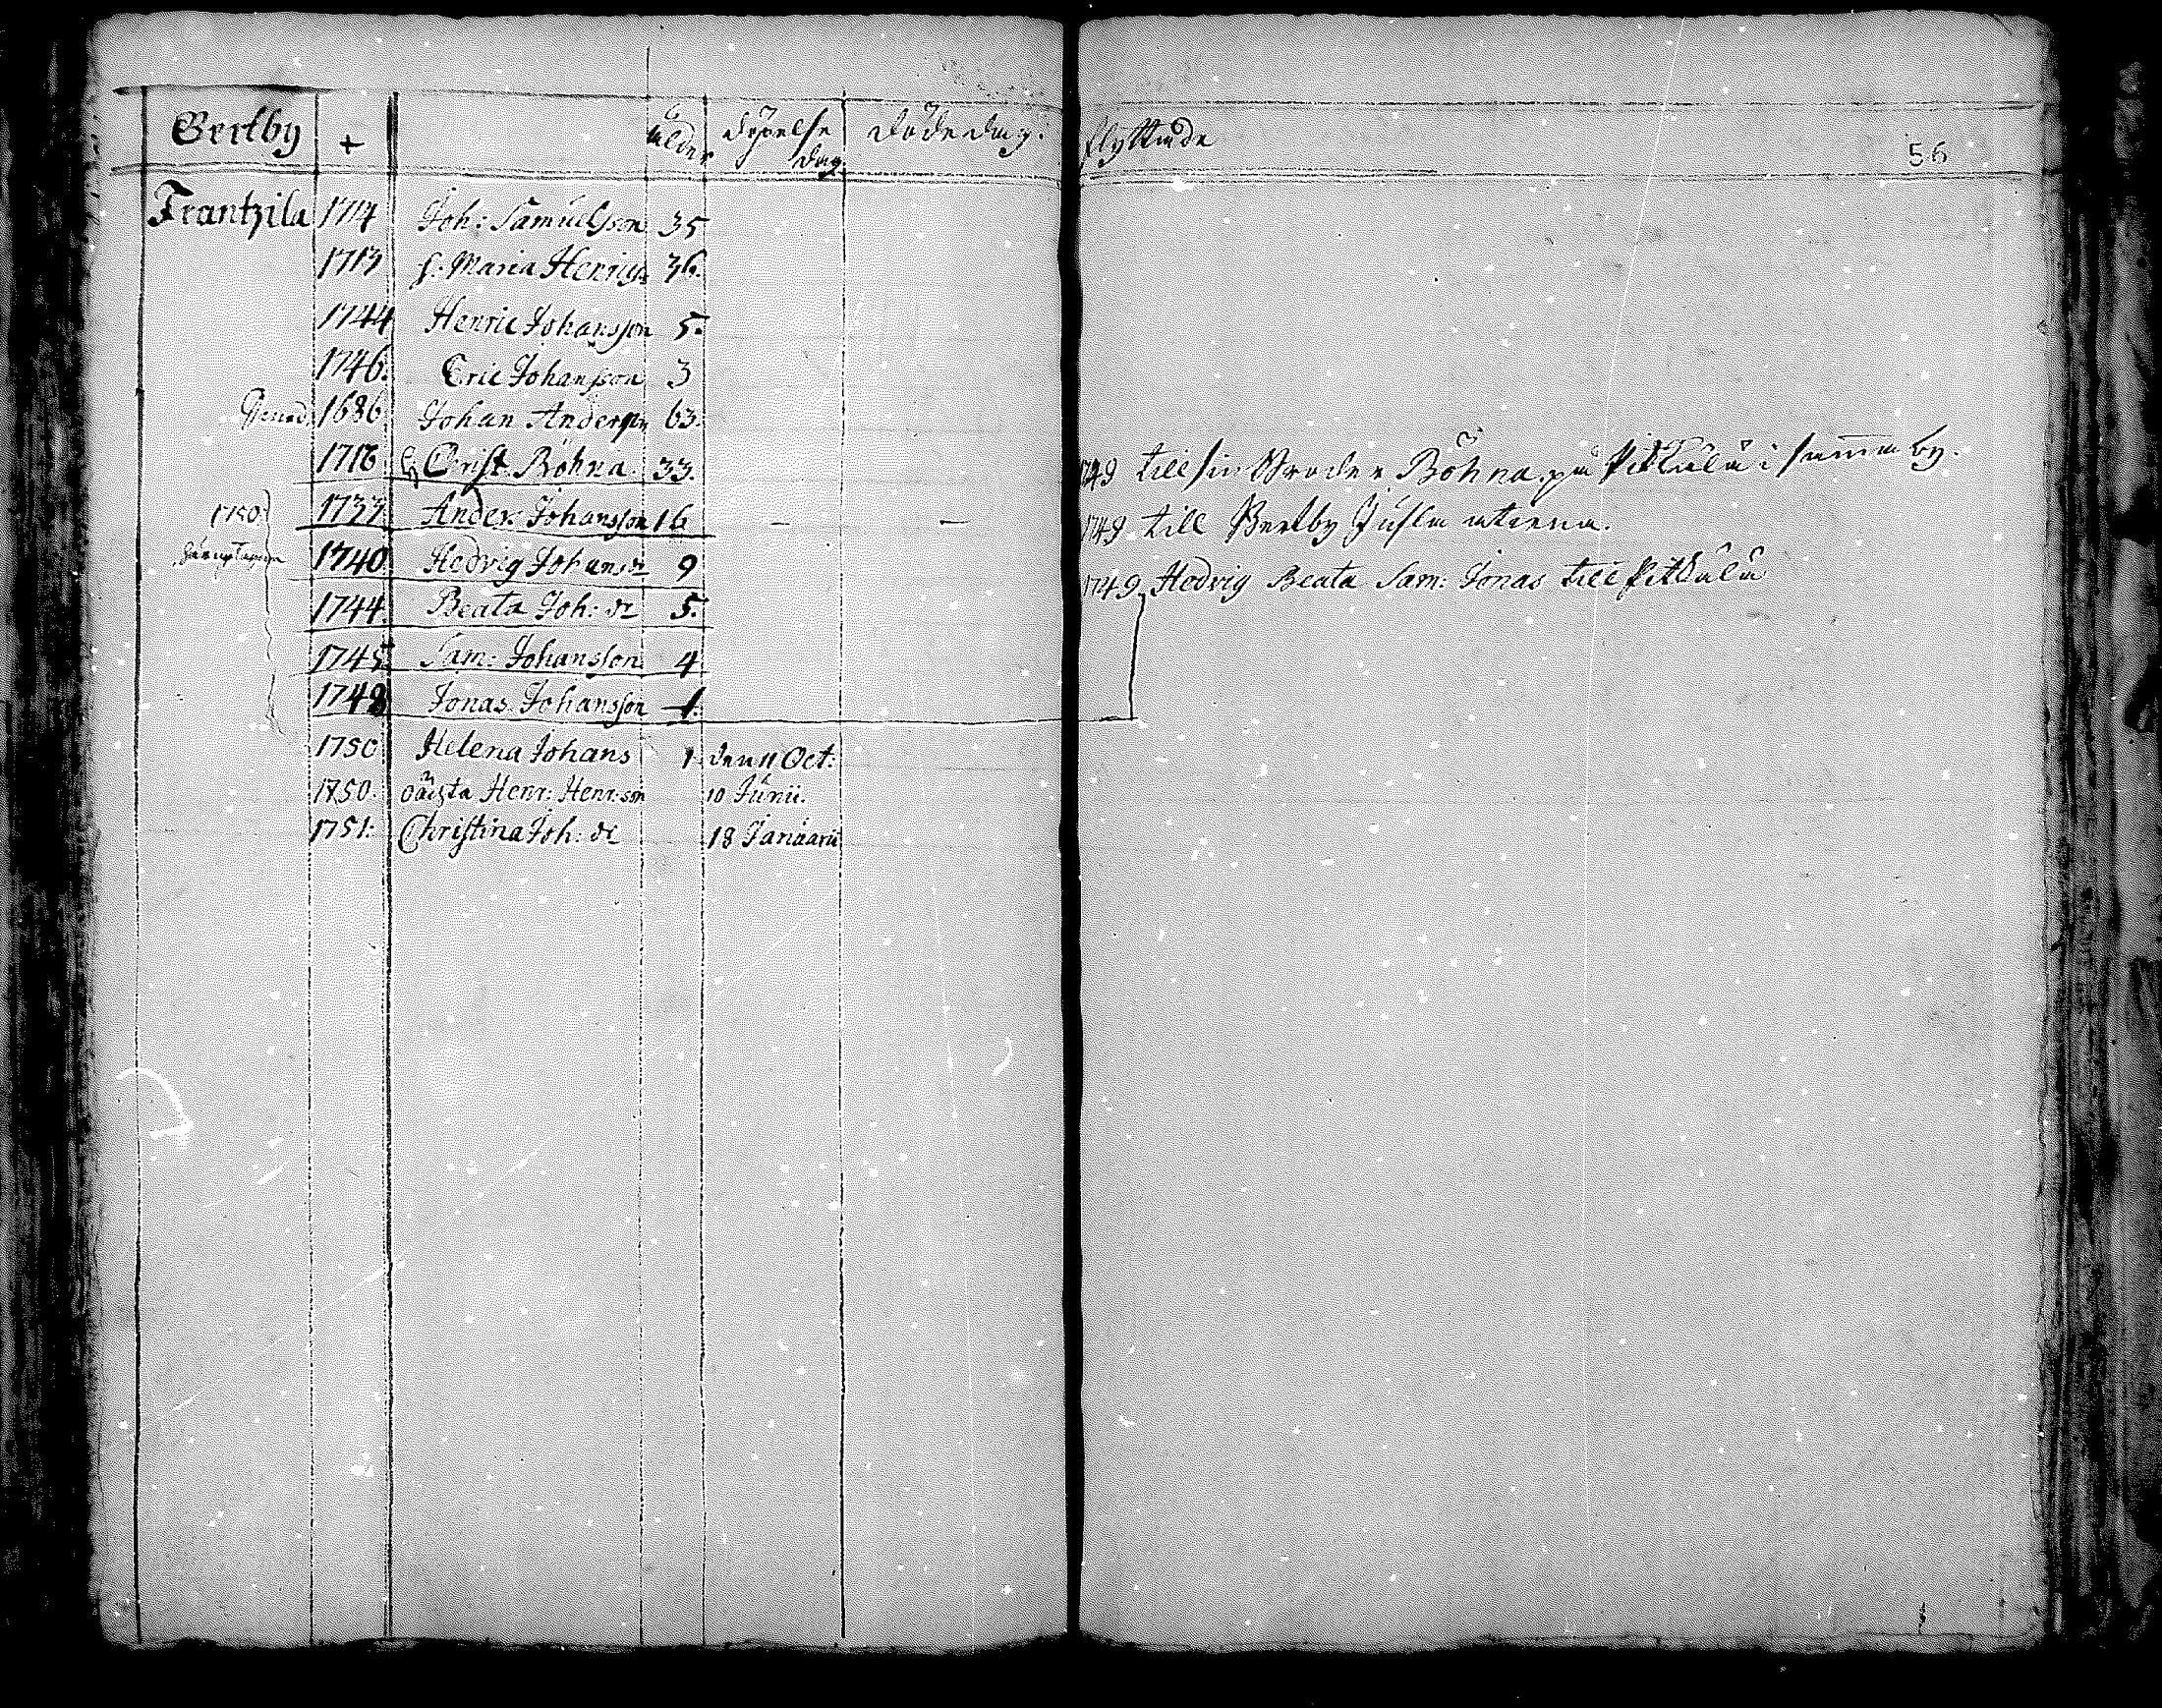 Bertby + ålder döpelse dag. döde dag. flyttade 56
Frantzila 1714 Joh: Samuelsson 35
1713 h. Maria Henrigs 36.
1744 Henric Johansson 5.
1746. Eric Johansson 3
1686 Johan Andersson 63.
1716 Christ. Böhna. 33. 1749 till sin broder Böhna på Pitkälä i samma by.
1750. 1733 Anders Johansson 16 - - 1749. till Bertby Jusla
1740 Hedvig Johans dr 9 1749. Hedvig Beata Sam: Jonas till Pitkälä
1744 Beata Joh: dr 5.
1745 Sam: Johansson. 4
1748 Jonas Johansson 1.
1750 Helena Johans 1 den 11 Oct:
1750. Henr: Henr:son 10 Junii.
1751. Christina Joh: dr 18 Januarii